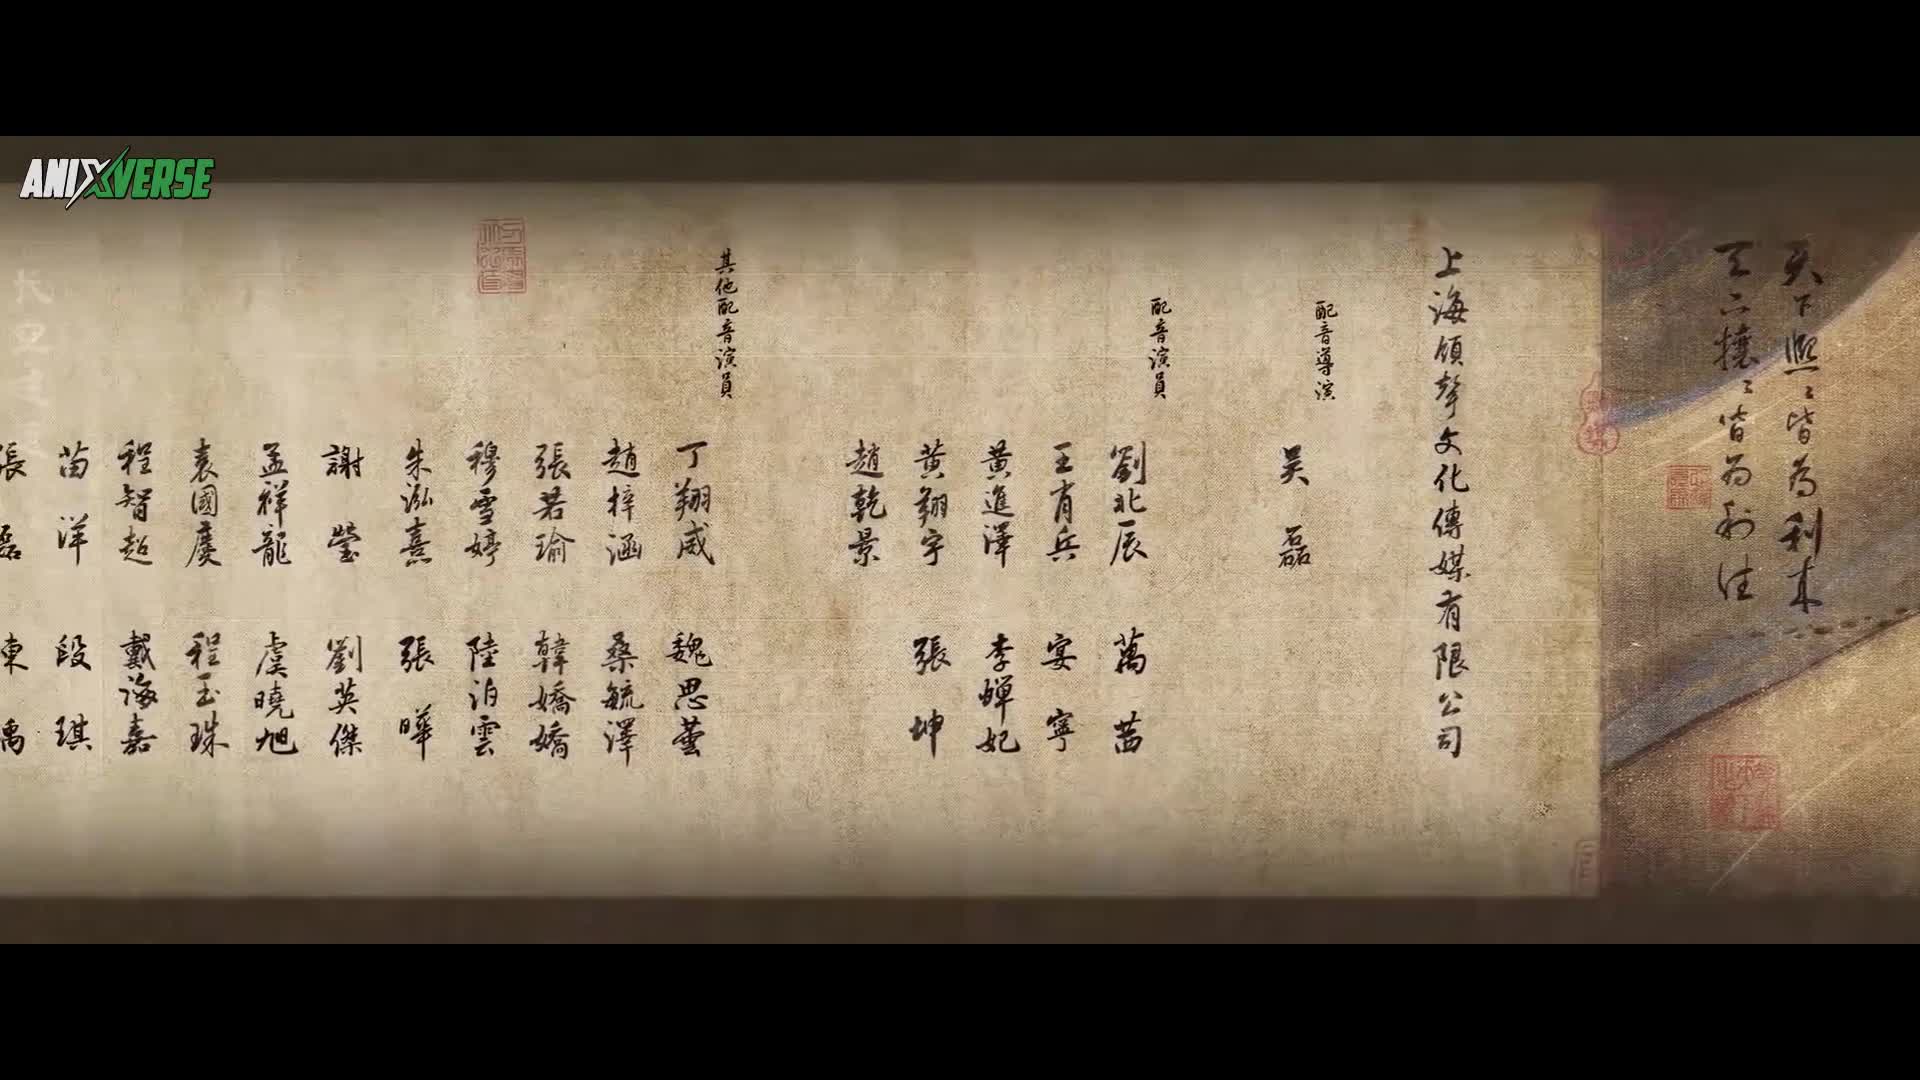 ANIXVERSE
天下熙〻皆為利来
天下攘〻皆為利往
上海領聲文化傳媒有限公司
配音導演
吴磊
配音演員
劉北辰
萬茜
王肖兵
宴寧
黄進澤
李蟬妃
黄翔宇
張坤
趙乾景
其他配音演員
丁翔威
魏思蕓
趙梓涵
桑毓澤
張若瑜
韓嬌嬌
穆雪婷
陸泊雲
朱泓熹
張曄
謝瑩
劉英傑
孟祥龍
虞曉旭
袁國慶
程玉珠
程智超
戴海嘉
苗洋
段琪
張磊